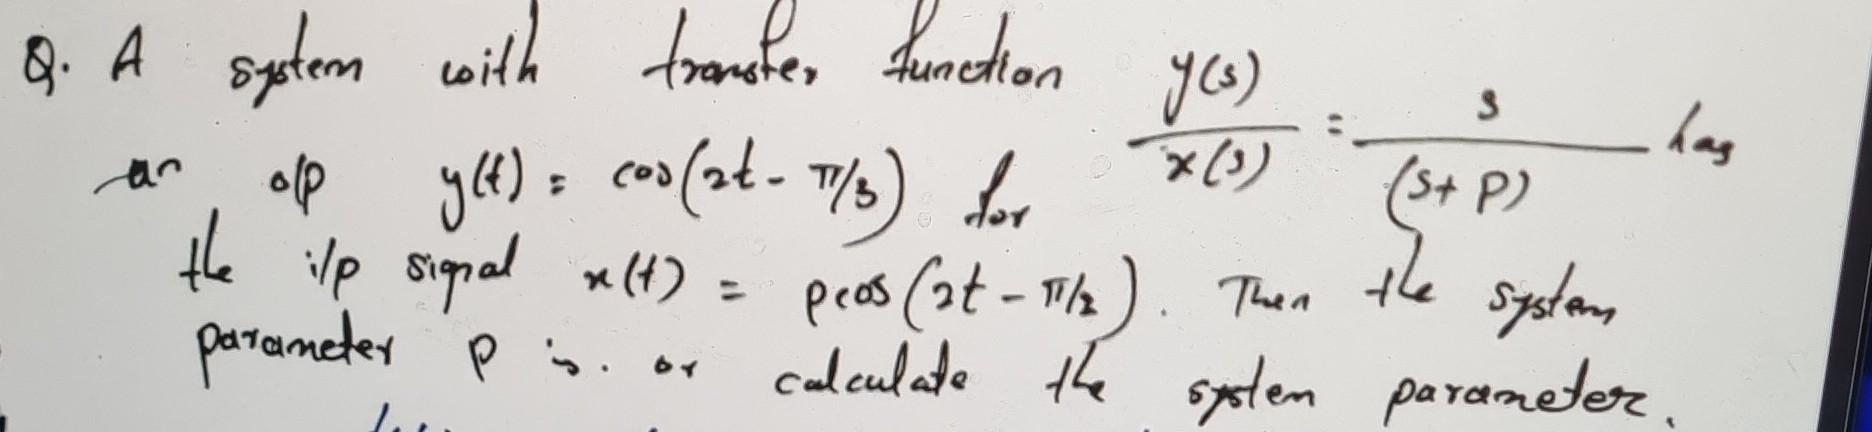 Q. A system with transfer function y(s)/x(s) = s/(s+p) has
an o/p y(t) = cos(2t - π/3) for
the i/p signal x(t) = pcos(2t - π/2). Then the system
parameter p is. or calculate the system parameter.